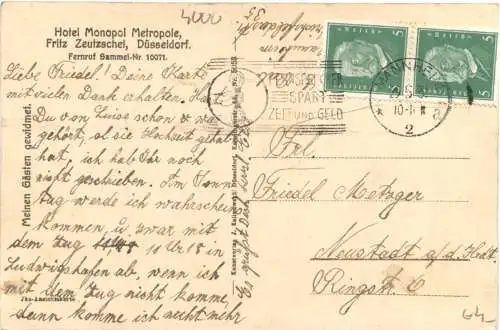 4000
Hotel Monopol Metropole,
Fritz Zeutzschel, Düsseldorf.
Fernruf Sammel-Nr 10071.
Meinen Gästen gewidmet.
Jka-Ansichtskarte
Liebe Friedel! Deine Karte
mit vielen Dank erhalten. Hast
Du von Luise schon was
gehört, ob sie Hochzeit gehalten
hat, ich hab ihr noch
nicht geschrieben. Am Sonn
tag werde ich wahrschein
kommen, u. zwar mit
dem Zug 10 Uhr 18 in
Ludwigshafen ab, wenn ich
mit dem Zug nicht komme,
dann komme ich nicht mehr
Es grüßt Dich
Mannheim
35
FERNSPRECHER
SPART
ZEIT UND GELD
MANNHEIM
10-11
* 2 a
5
5
Frl.
Friedel Metzger
Neustadt a/d. Hdt.
Ringstr. 6
64-